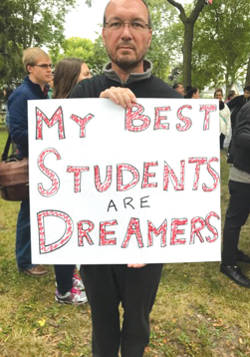 My Best
Students
are
Dreamers